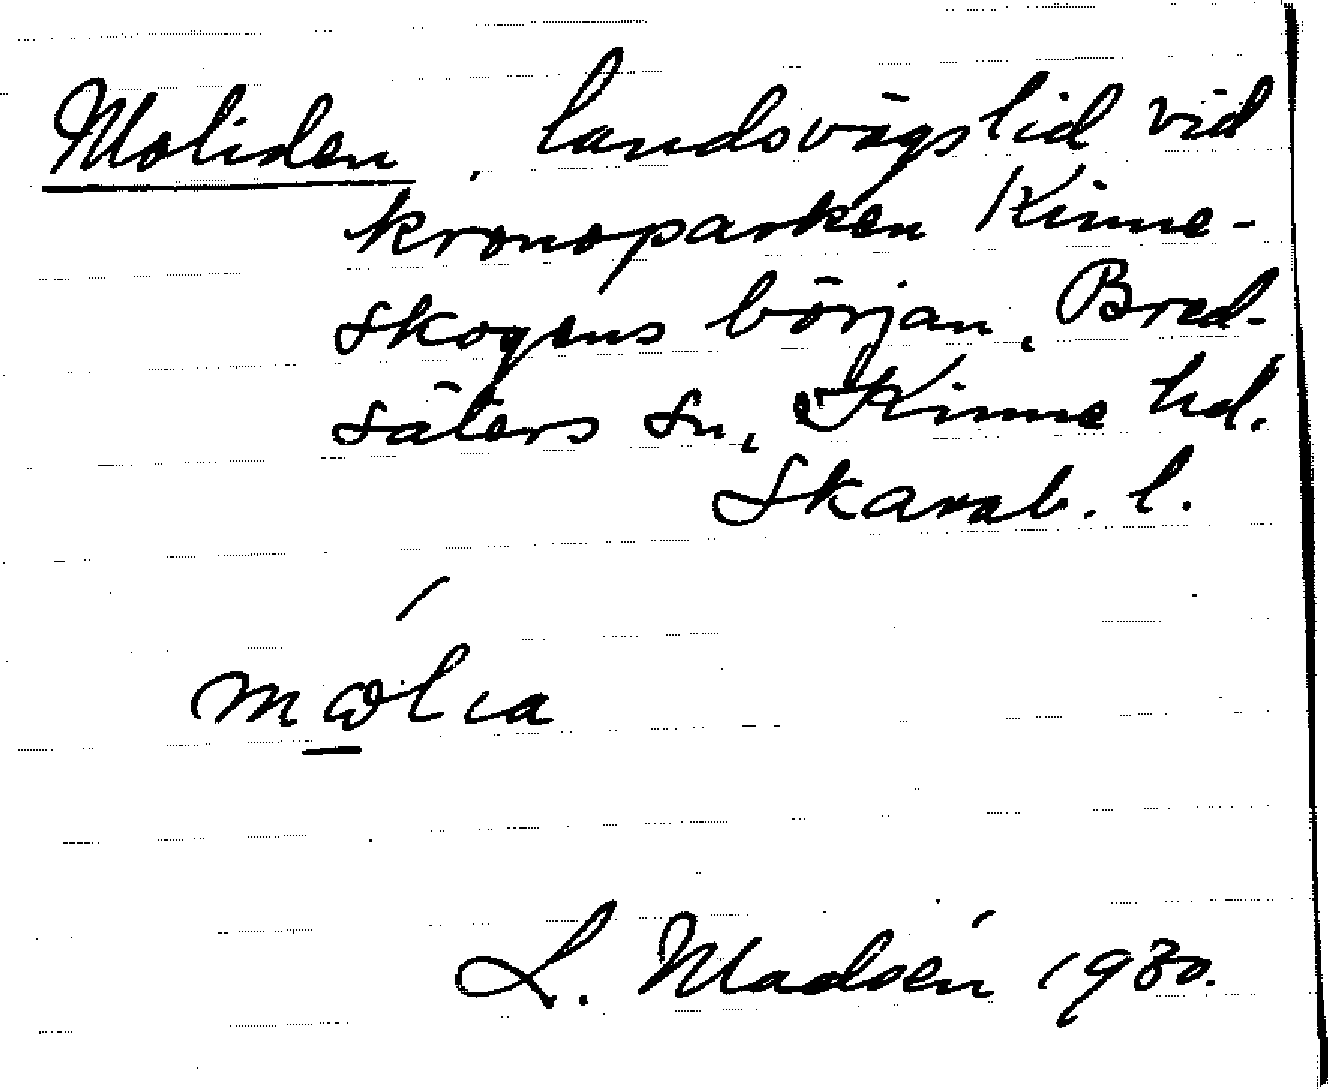 Moliden, landsvägslid vid
kronoparken Kinne-
skogens början, Bred-
säters sn, Kinne hd.
Skarab. l.
L. Madsén 1930.